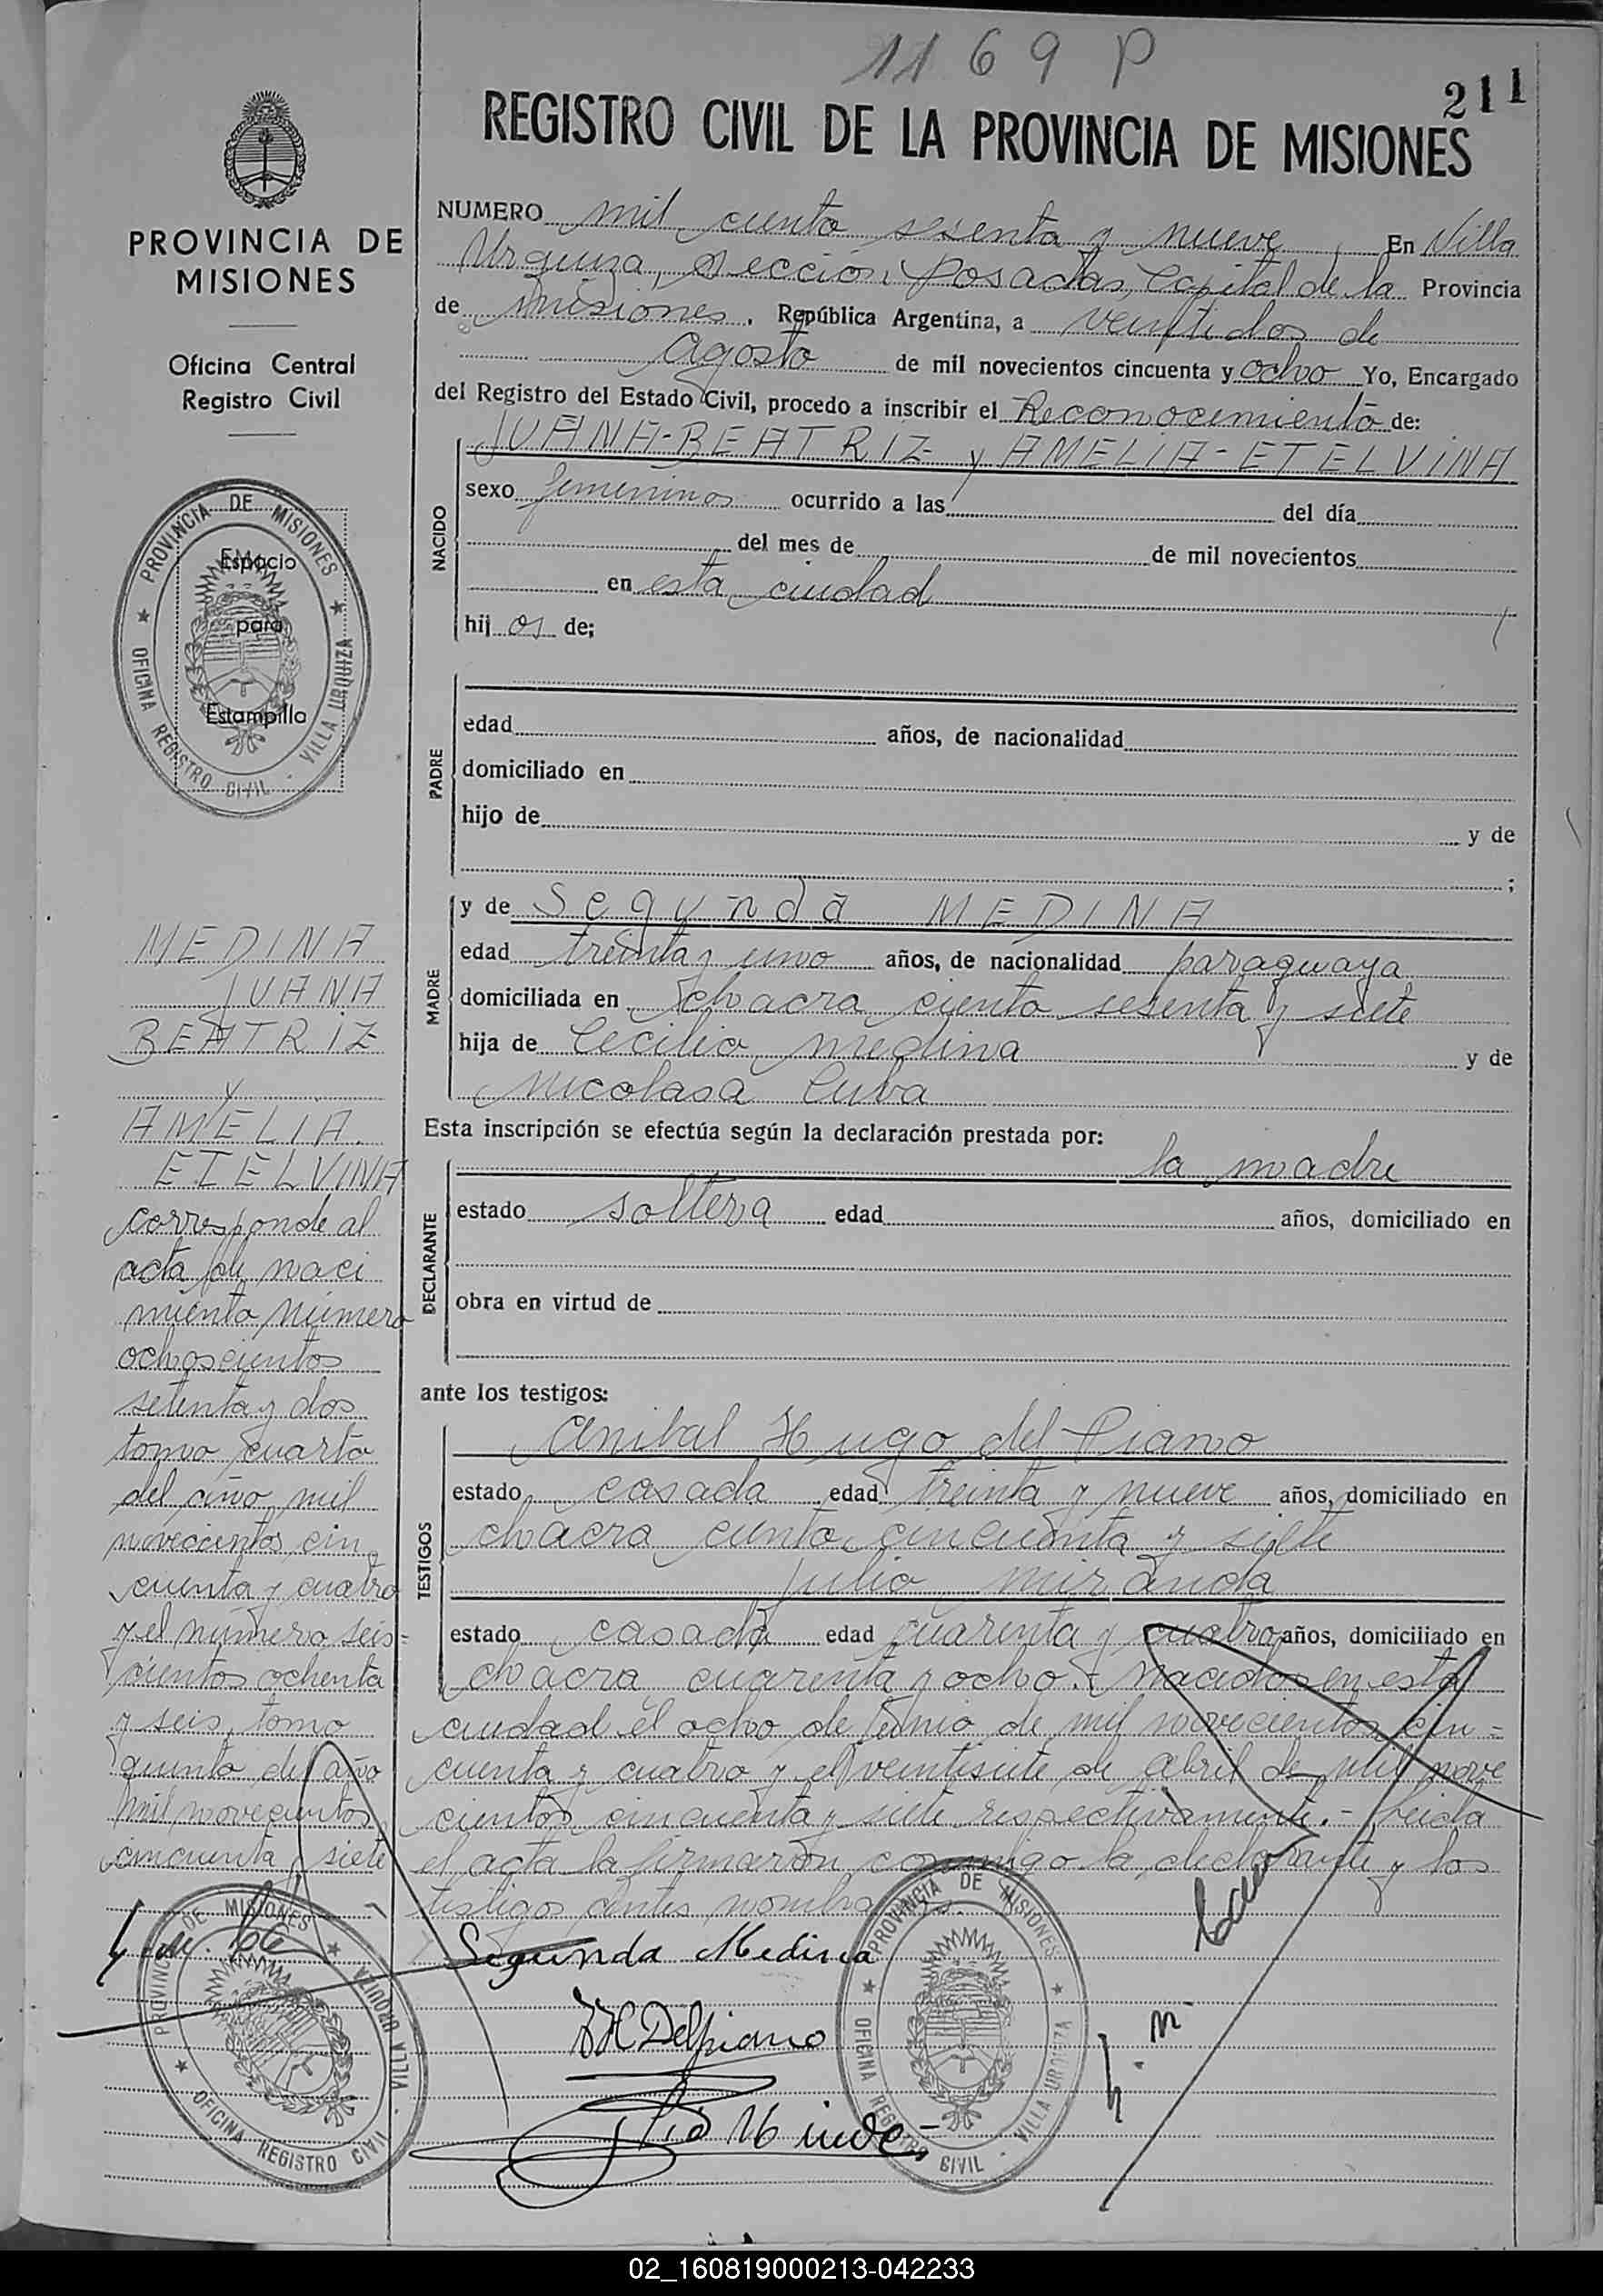 1169 P
211
REGISTRO CIVIL DE LA PROVINCIA DE MISIONES
PROVINCIA DE
MISIONES
Oficina Central
Registro Civil
PROVINCIA DE MISIONES
OFICINA REGISTRO CIVIL - VILLA URQUIZA
Espacio
para
Estampilla
NUMERO mil ciento sesenta y nueve, En Villa
Urquiza, Sección Posadas, Capital de la Provincia
de Misiones, República Argentina, a veintidos de
Agosto de mil novecientos cincuenta y ocho Yo, Encargado
del Registro del Estado Civil, procedo a inscribir el Reconocimiento de:
NACIDO
JUANA-BEATRIZ y AMELIA-ETELVINA
sexo femeninos ocurrido a las del día
del mes de de mil novecientos
en esta ciudad
hij os de;
PADRE
edad años, de nacionalidad
domiciliado en
hijo de y de
;
MADRE
y de Segunda MEDINA
edad treinta y uno años, de nacionalidad paraguaya
domiciliada en chacra ciento sesenta y siete
hija de Cecilio Medina y de
Nicolasa Cuba
Esta inscripción se efectúa según la declaración prestada por:
DECLARANTE
la madre
estado soltera edad años, domiciliado en
obra en virtud de
ante los testigos:
TESTIGOS
Anibal Hugo del Piano
estado casado edad treinta y nueve años, domiciliado en
chacra ciento cincuenta y siete
Julio Miranda
estado casado edad cuarenta y cuatro años, domiciliado en
chacra cuarenta y ocho.- Nacidos en esta
ciudad el ocho de Junio de mil novecientos cin=
cuenta y cuatro y el veintisiete de abril de mil nove
cientos cincuenta y siete respectivamente.- Leida
el acta la firmaron conmigo la declarante y los
testigos antes nombrados.
Segunda Medina
AHDelpiano
MEDINA
JUANA
BEATRIZ
y
AMELIA
ETELVINA
corresponde al
acta de naci
miento número
ochoscientos
setenta y dos
tomo cuarto
del año mil
novecientos cin
cuenta y cuatro
y el número seis=
cientos ochenta
y seis, tomo
quinto del año
mil novecientos
cincuenta y siete
PROVINCIA DE MISIONES
OFICINA REGISTRO CIVIL - VILLA URQUIZA
PROVINCIA DE MISIONES
OFICINA REGISTRO CIVIL - VILLA URQUIZA
02_160819000213-042233